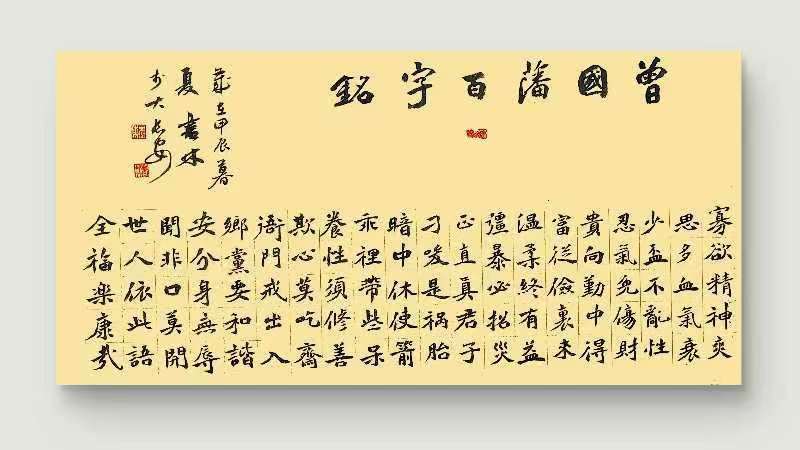 曾國藩百字銘
寡欲精神爽
思多血氣衰
少盃不亂性
忍氣免傷財
貴向勤中得
富從儉裏来
温柔終有益
彊暴必招災
正直真君子
刁唆是禍胎
暗中休使箭
乖裡帶些呆
養性須修善
欺心莫吃齋
衙門戒出入
鄉黨要和諧
安分身無辱
閒非口莫開
世人依此語
全福樂康哉
歲在甲辰暮
夏書林
於大長安